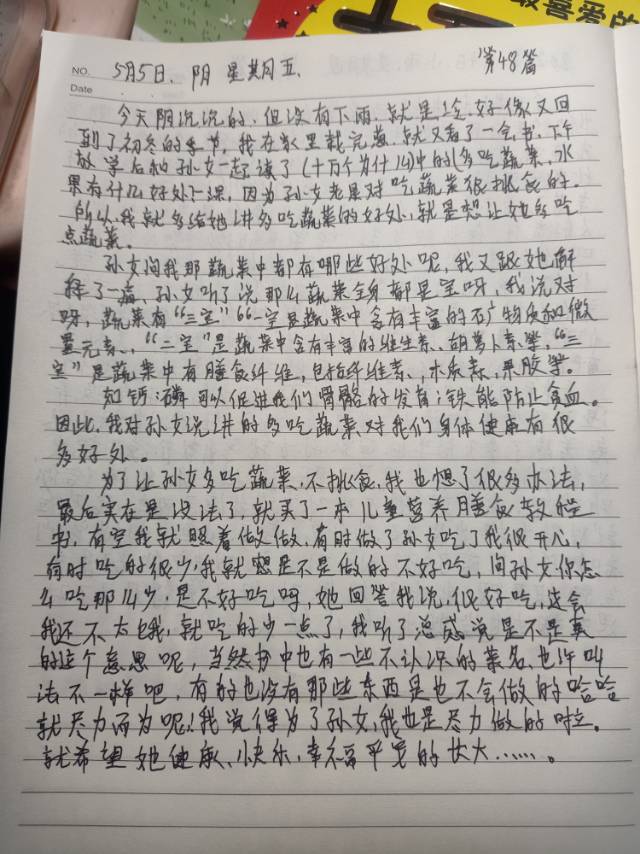 最喜爱的
NO.
Date
5月5日、阴 星期五、 第48篇
今天阴沉沉的、但没有下雨、就是冷、好像又回
到了初冬的季节，我在家里栽完葱、就又看了一会书、下午
放学后和孙女一起读了《十万个为什么》中的《多吃蔬菜、水
果有什么好处》课，因为孙女老是对吃蔬菜很挑食的。
所以我就多给她讲多吃蔬菜的好处、就是想让她多吃
点蔬菜。
孙女问我那蔬菜中都有哪些好处呢，我又跟她解
释了一遍、孙女听了说那么蔬菜全身都是宝呀，我说对
呀，蔬菜有“三宝”“一宝是蔬菜中含有丰富的矿物质和微
量元素、“二宝”是蔬菜中含有丰富的维生素、胡萝卜素等，“三
宝”是蔬菜中有膳食纤维，包括纤维素、木质素，果胶等。
如钙：磷可以促进我们骨骼的发育；铁能防止贫血。
因此，我对孙女说讲的多吃蔬菜对我们身体健康有很
多好处。
为了让孙女多吃蔬菜，不挑食，我也想了很多办法，
最后实在是没法了，就买了一本儿童营养膳食教程
书，有空我就跟着做做，有时做了孙女吃了我很开心，
有时吃的很少，我就想是不是做的不好吃，问孙女你怎
么吃那么少，是不好吃吗，她回答我说，很好吃，这会
我还不太饿，就吃的少一点了，我听了总感觉是不是真
的这个意思呢，当然书中也有一些不认识的菜名，也许叫
法不一样吧，有的也没有那些东西是也不会做的哈哈
就尽力而为呢！我觉得为了孙女，我也是尽力做的啦。
就希望她健康、快乐，幸福平安的长大……。